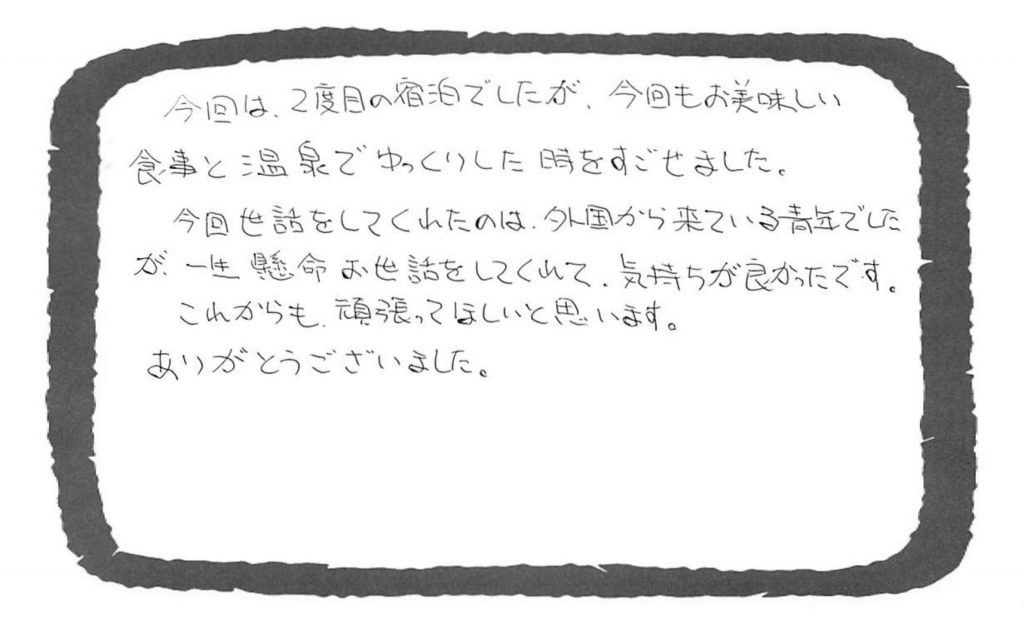 今回は、2度目の宿泊でしたが、今回もお美味しい
食事と温泉でゆっくりした時をすごせました。
今回世話をしてくれたのは、外国から来ている青年でした
が、一生懸命お世話をしてくれて、気持ちが良かったです。
これからも、頑張ってほしいと思います。
ありがとうございました。